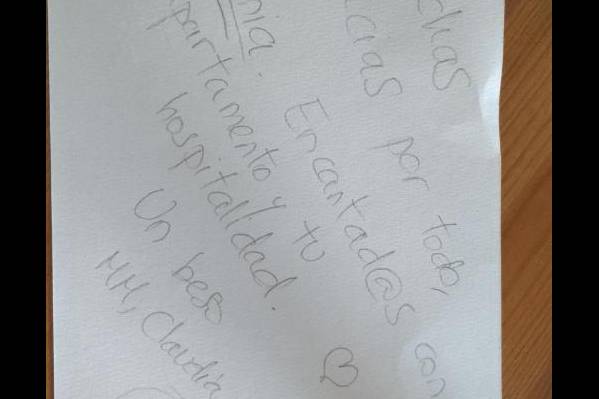 chas
cias por todo,
nia. Encantad@s con
partamento y tu ♡
hospitalidad.
Un beso
MM, Claudia